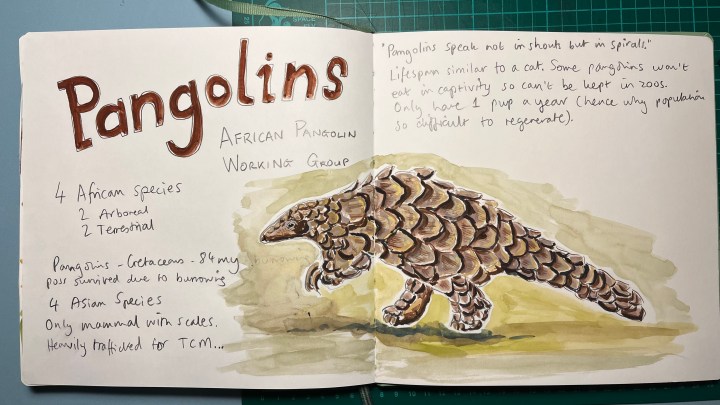 Pangolins
AFRICAN PANGOLIN
WORKING GROUP
4 African species
2 Arboreal
2 Terrestrial
Pangolins - Cretaceous - 84 my
poss survived due to burrowing
4 Asian Species
Only mammal with scales.
Heavily trafficked for TCM...
"Pangolins speak not in shouts but in spirals."
Lifespan similar to a cat. Some pangolins won't
eat in captivity so can't be kept in zoos.
Only have 1 pup a year (hence why population
so difficult to regenerate).